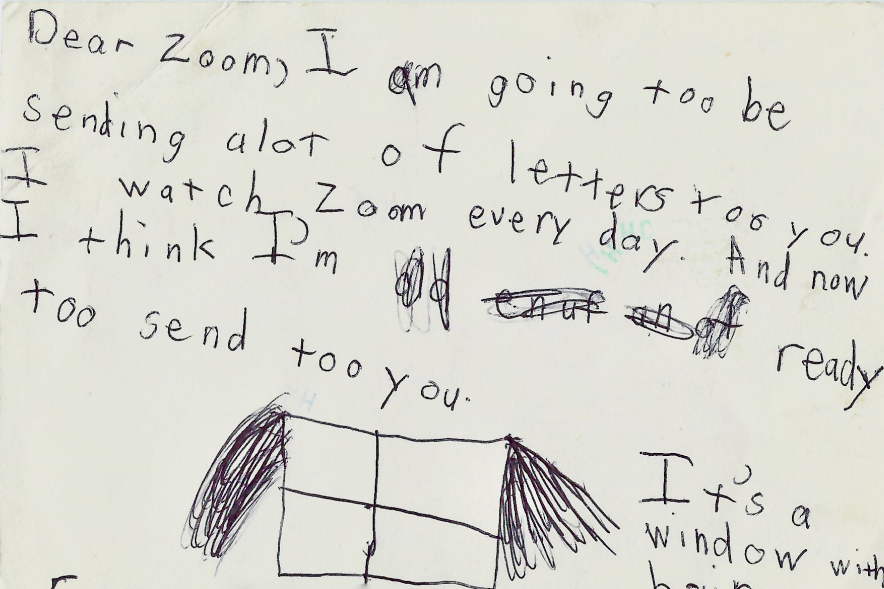 Dear Zoom, I am going too be
sending alot of letters too you.
I watch Zoom every day. And now
I think I'm old enuf an ready
too send too you.
It's a
window with
hair